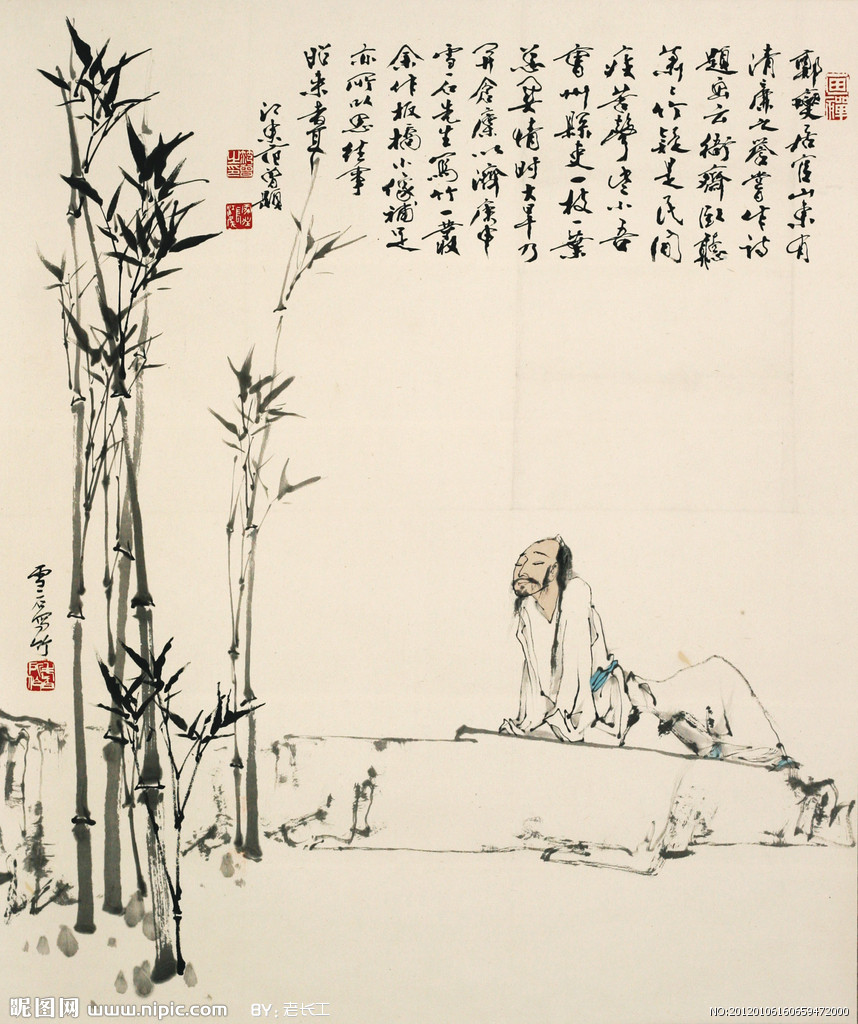 鄭燮居官山東有
清廉之譽嘗作詩
題画云衙齋臥聽
蕭〻竹疑是民間
疾苦聲些小吾
曹州縣吏一枝一葉
總關情時大旱乃
開倉廩以濟庚申
雪石先生寫竹一叢
余作板橋小像補足
亦所以思往事
昭来者耳
江東范曾題
雪石寫竹
昵图网 www.nipic.com BY: 老长工
NO:20120106160659472000